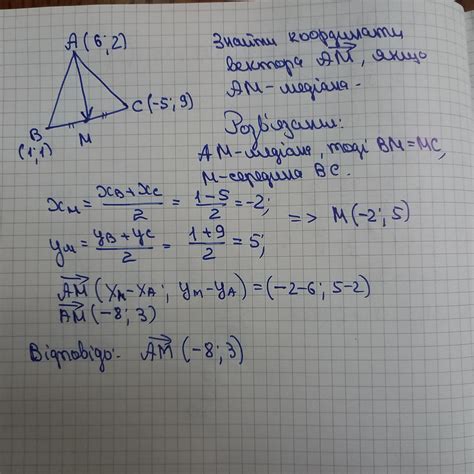 A(6;2)
C(-5;9)
B
(1;1)
M
Знайти координати
вектора AM→, якщо
AM-медіана.
Розв'язання:
AM-медіана, тоді BM=MC,
M-середина BC.
xм = (xв+xс)/2 = (1-5)/2 = -2;
=> M(-2;5)
yм = (yв+yс)/2 = (1+9)/2 = 5;
AM→ (xм-xА; yм-yА) = (-2-6; 5-2)
AM→ (-8;3)
Відповідь: AM→ (-8;3)